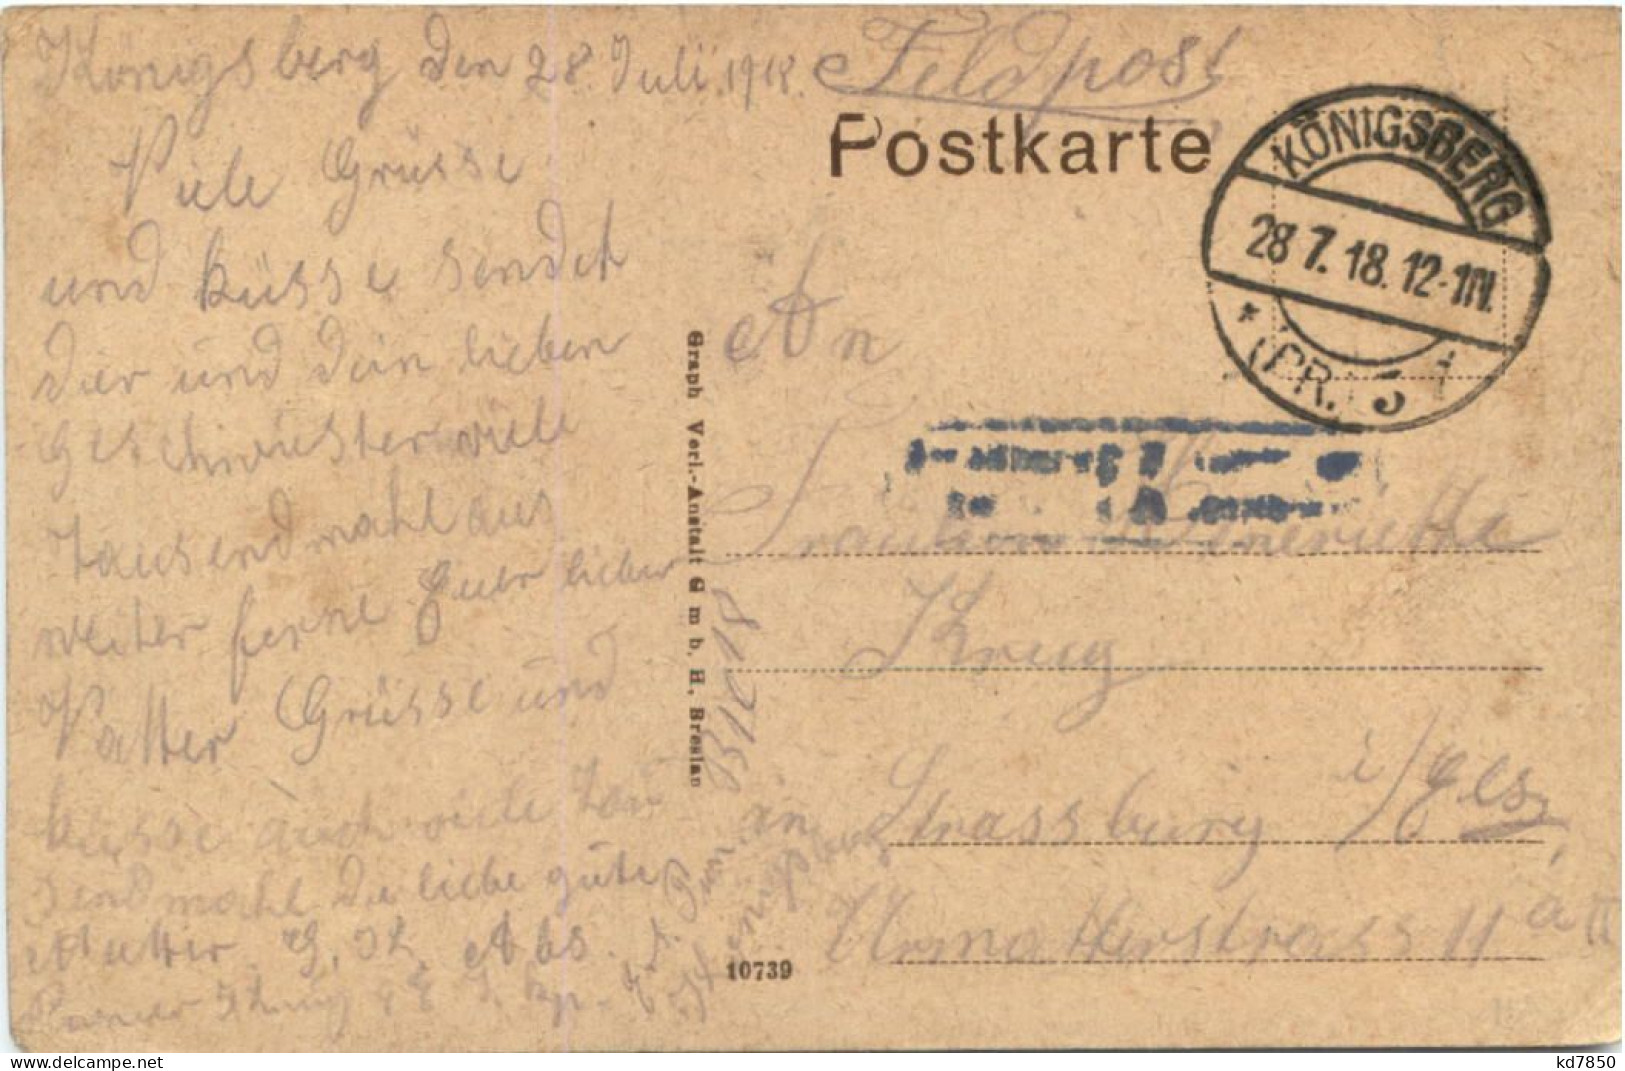 Königsberg den 28. Juli. 1918.
Viele Grüsse
und küsse sendet
dier und dein lieben
geschwister viele
tausendmahl aus
weiter ferne Euer lieber
Vatter Grüsse und
küsse auch viele tau
sendmahl die liebe gute
Mutter. G. K. Abs.
Feldpost
Postkarte
KÖNIGSBERG
28 7. 18. 12-1N.
* (PR.) 5
An
Fräulein Henriette
Krug
Strassburg i/Els
11
Graph Verl.-Anstalt G m b. H., Breslau
10739
delcampe.net
kd7850